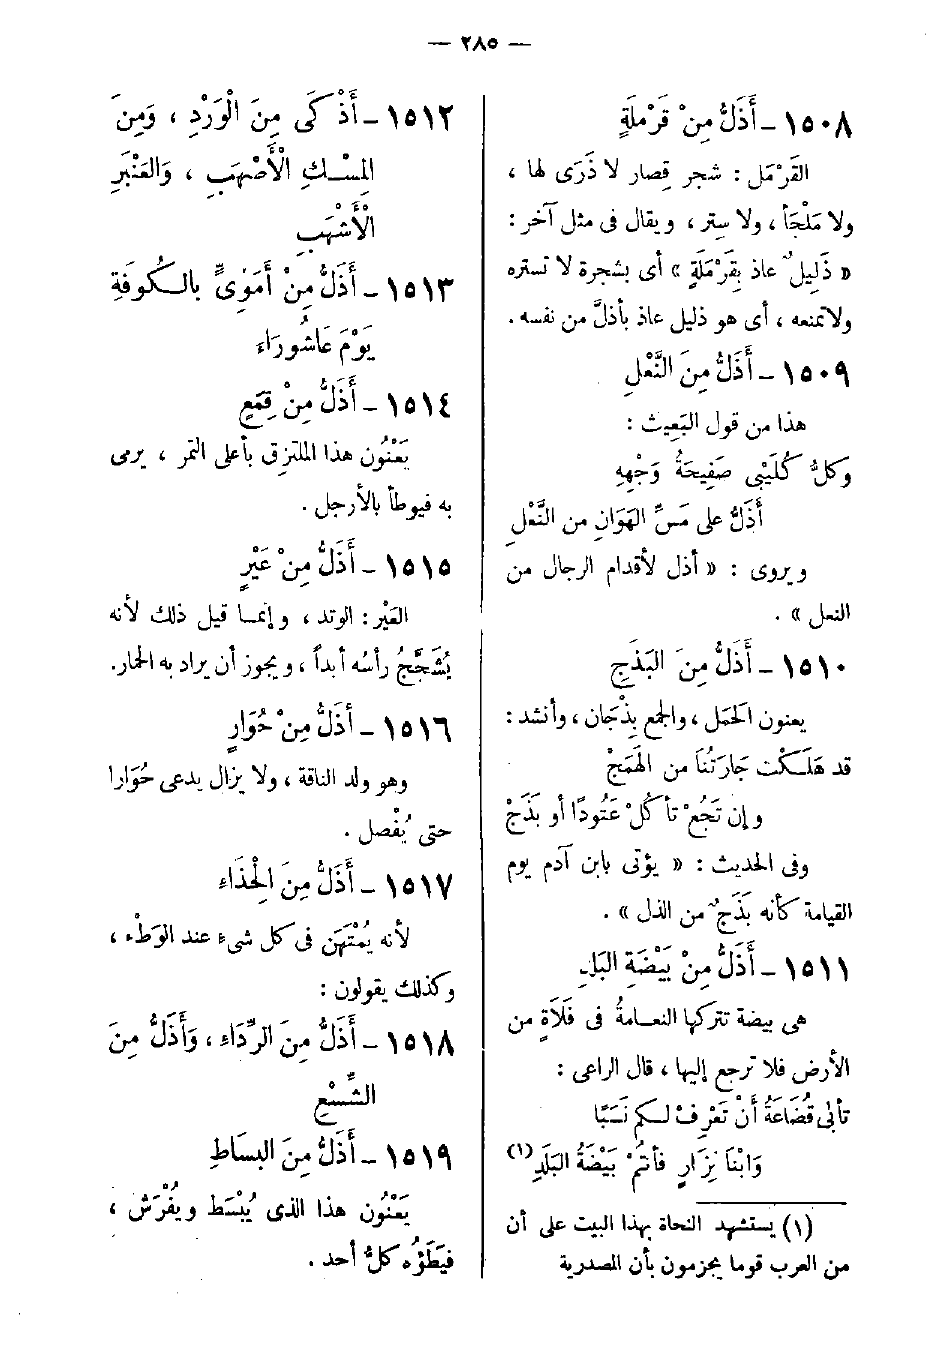 — ٢٨٥ —
١٥٠٨ – أَذَلُّ مِنْ قَرْمَلَةٍ
القَرْمَل : شجر قِصار لا ذَرَى لها ،
ولا مَلْجَأ ، ولا سِتر ، ويقال فى مثل آخر :
« ذَلِيلٌ عاذ بِقَرْمَلَةٍ » أى بشجرة لا تستره
ولا تمنعه ، أى هو ذليل عاذ بأذلَّ من نفسه .
١٥٠٩ – أَذَلُّ مِنَ النَّعْلِ
هذا من قول البَعِيث :
وَكلُّ كُلَيْبِى صَفِيحَةُ وَجْهِهِ
أَذَلُّ على مَسِّ الهَوَانِ من النَّعْلِ
ويروى : « أذل لأقدام الرجال من
النعل » .
١٥١٠ – أَذَلُّ مِنَ البَذَجِ
يعنون الحَمَل ، والجمع بِذْجَان ، وأنشد :
قد هَلَكَتْ جَارَتُنَا من الهَمَجْ
وإن تَجُعْ تأكُلْ عَتُودًا أو بَذَجْ
وفى الحديث : « يؤتى بابن آدم يوم
القيامة كأنه بَذَجٌ من الذل » .
١٥١١ – أَذَلُّ مِنْ بَيْضَةِ البَلَدِ
هى بيضة تتركها النعامةُ فى فَلَاةٍ من
الأرض فلا ترجع إليها ، قال الراعى :
تأبَى قُضَاعَةُ أَنْ تَعْرِفْ لكم نَسَبًا
وَابْنَا نِزَارٍ فأنتُمْ بَيْضَةُ البَلَدِ (١)
(١) يستشهد النحاة بهذا البيت على أن
من العرب قوما يجزمون بأن المصدرية
١٥١٢ – أَذْكَى مِنَ الْوَرْدِ ، وَمِنَ
المِسْكِ الْأَصْهَبِ ، وَالعَنْبَرِ
الْأَشْهَبِ
١٥١٣ – أَذَلُّ مِنْ أَمَوِىٍّ بِالكُوفَةِ
يَوْمَ عَاشُورَاءَ
١٥١٤ – أَذَلُّ مِنْ قِمَعٍ
يَعْنُون هذا الملتزِق بأعلى التمر ، يرمى
به فيوطأ بالأرجل .
١٥١٥ – أَذَلُّ مِنْ عَيْرٍ
العَيْر : الوتد ، وإنما قيل ذلك لأنه
يُشَجَّجُ رأسُه أبداً ، ويجوز أن يراد به الحمار.
١٥١٦ – أَذَلُّ مِنْ حُوَارٍ
وهو ولد الناقة ، ولا يزال يدعى حُوَارا
حتى يُفْصل .
١٥١٧ – أَذَلُّ مِنَ الْحِذَاءِ
لأنه يُمْتَهَن فى كل شىءٍ عند الوَطْء ،
وكذلك يقولون :
١٥١٨ – أَذَلُّ مِنَ الرِّدَاءِ ، وَأَذَلُّ مِنَ
الشِّسْعِ
١٥١٩ – أَذَلُّ مِنَ البِسَاطِ
يَعْنُون هذا الذى يُبْسَط ويُفْرَش ،
فيَطَؤُه كلُّ أحد .